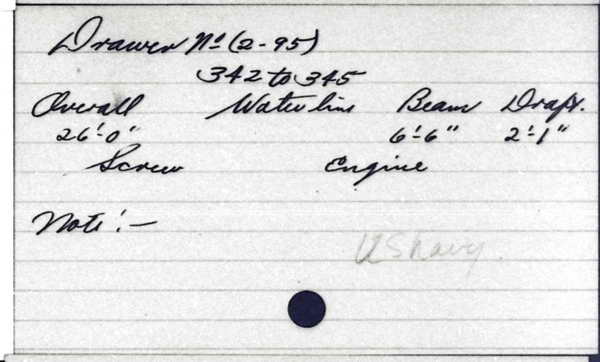 Drawer No (2-95)
342 to 345
Overall Waterline Beam Draft.
26'-0" 6'-6" 2'-1"
Screw Engine
Note:-
US Navy.